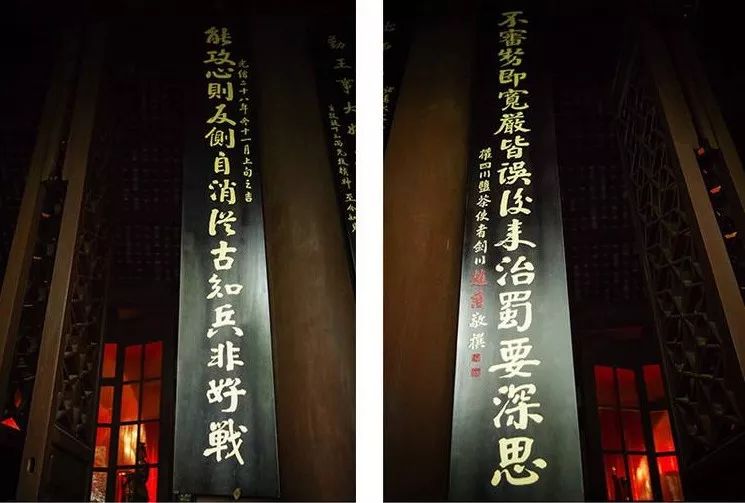 能攻心則反側自消從古知兵非好戰
光緒二十八年冬十一月上旬之吉
勤王事大
不審勢即寬嚴皆誤後來治蜀要深思
權四川鹽茶使者劍川趙藩敬撰